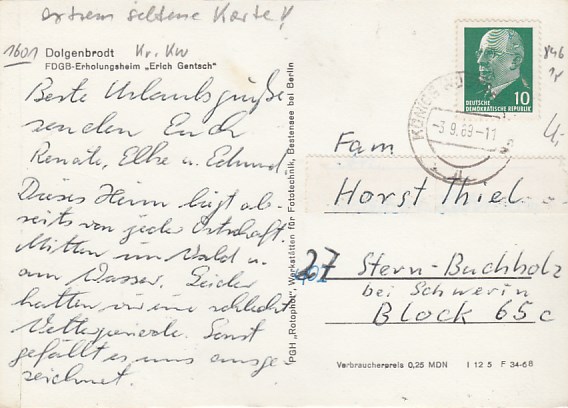 extrem seltene Karte!
1601 Dolgenbrodt Kr. KW
FDGB-Erholungsheim „Erich Gentsch"
Beste Urlaubsgrüße
senden Euch
Renate, Elke und Edmund.
Dieses Heim liegt ab-
seits von jeder Ortschaft
Mitten im Wald u.
am Wasser. Leider
hatten wir eine schlechte
Wetterperiode. Sonst
gefällt es uns ausge
zeichnet.
PGH „Rotophot", Werkstätten für Fototechnik, Bestensee bei Berlin
10
DEUTSCHE
DEMOKRATISCHE REPUBLIK
-3.9.69-11
846
4,-
Fam
Horst Thiel
27 Stern-Buchholz
bei Schwerin
Block 65c
Verbraucherpreis 0,25 MDN I 12 5 F 34-68